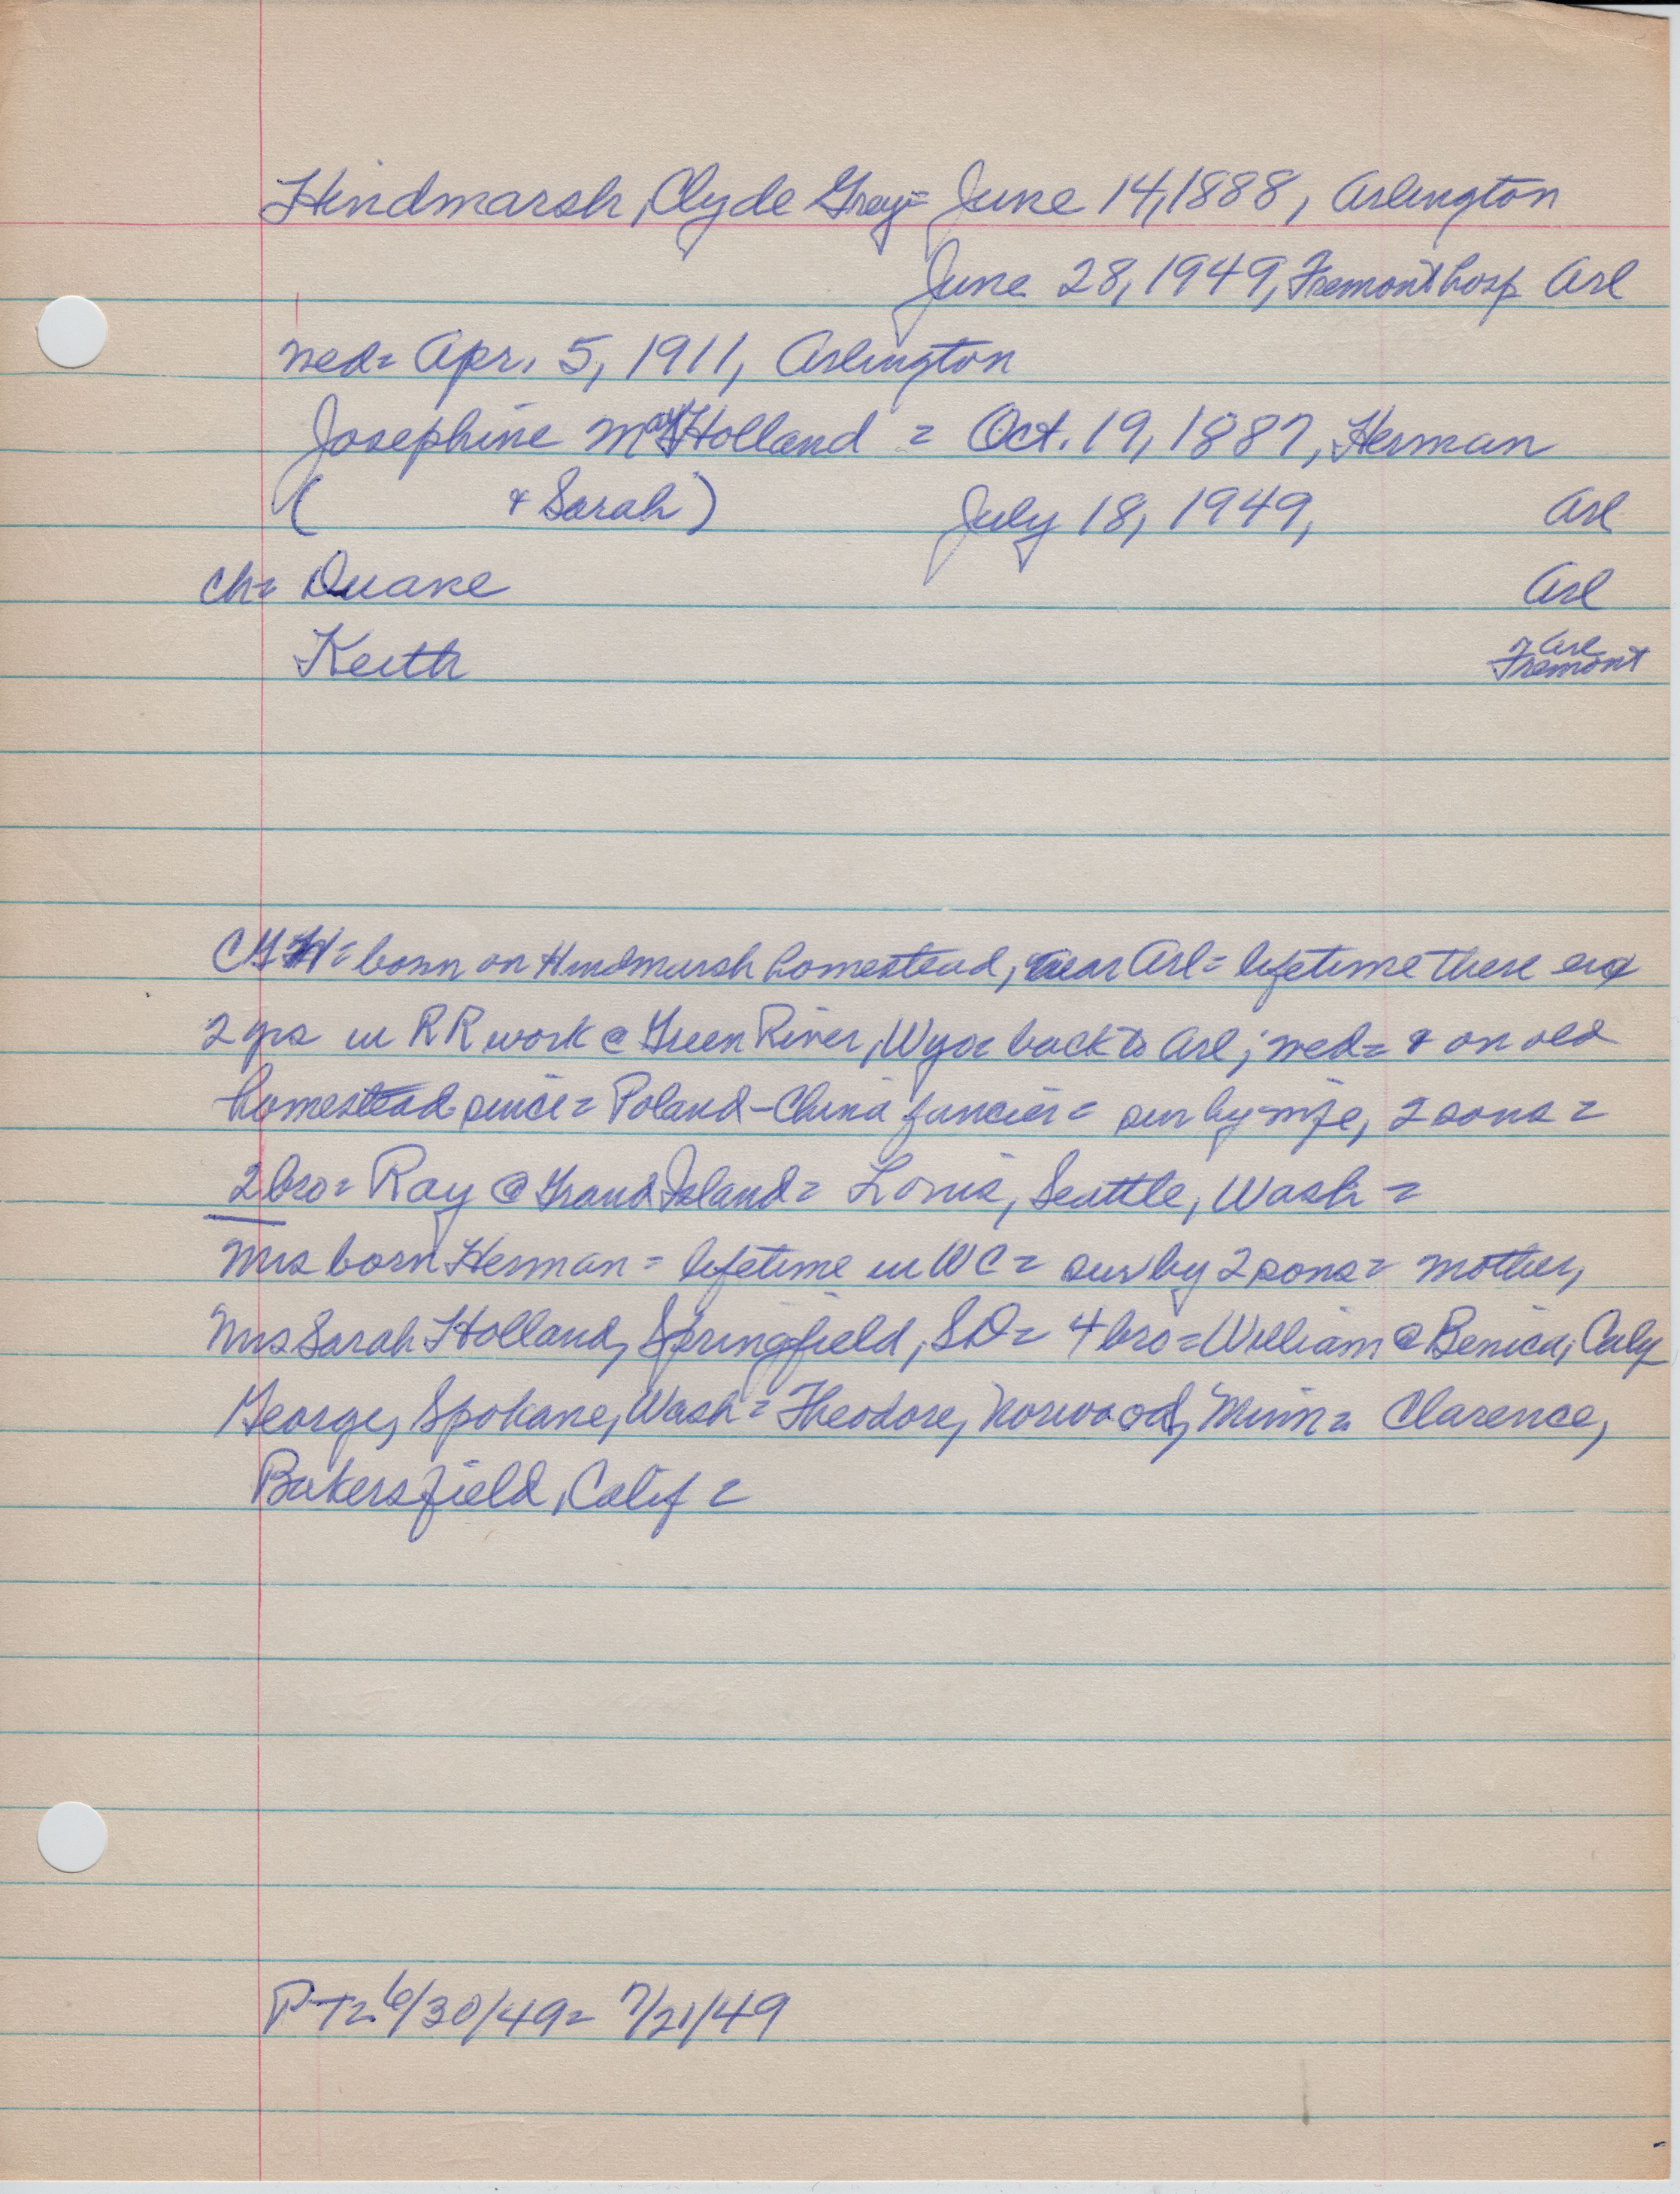 Hindmarsh, Clyde Grey = June 14, 1888, Arlington
June 28, 1949, Fremont hosp Arl
wed = Apr. 5, 1911, Arlington
Josephine May Holland = Oct. 19, 1887, Herman
( & Sarah) July 18, 1949, Arl
ch = Duane Arl
Keith Arl
Fremont
CGH = born on Hindmarsh homestead, near Arl = lifetime there exc
2 yrs in RR work @ Green River, Wyo = back to Arl; wed = & on old
homestead since = Poland-China fancier = sur by wife, 2 sons =
2 bro = Ray @ Grand Island = Louis, Seattle, Wash =
Mrs born Herman = lifetime in WC = sur by 2 sons = mother,
Mrs Sarah Holland, Springfield, SD = 4 bro = William @ Benica, Calif
George, Spokane, Wash = Theodore, Norwood, Minn = Clarence,
Bakersfield, Calif =
P-T = 6/30/49 = 7/21/49